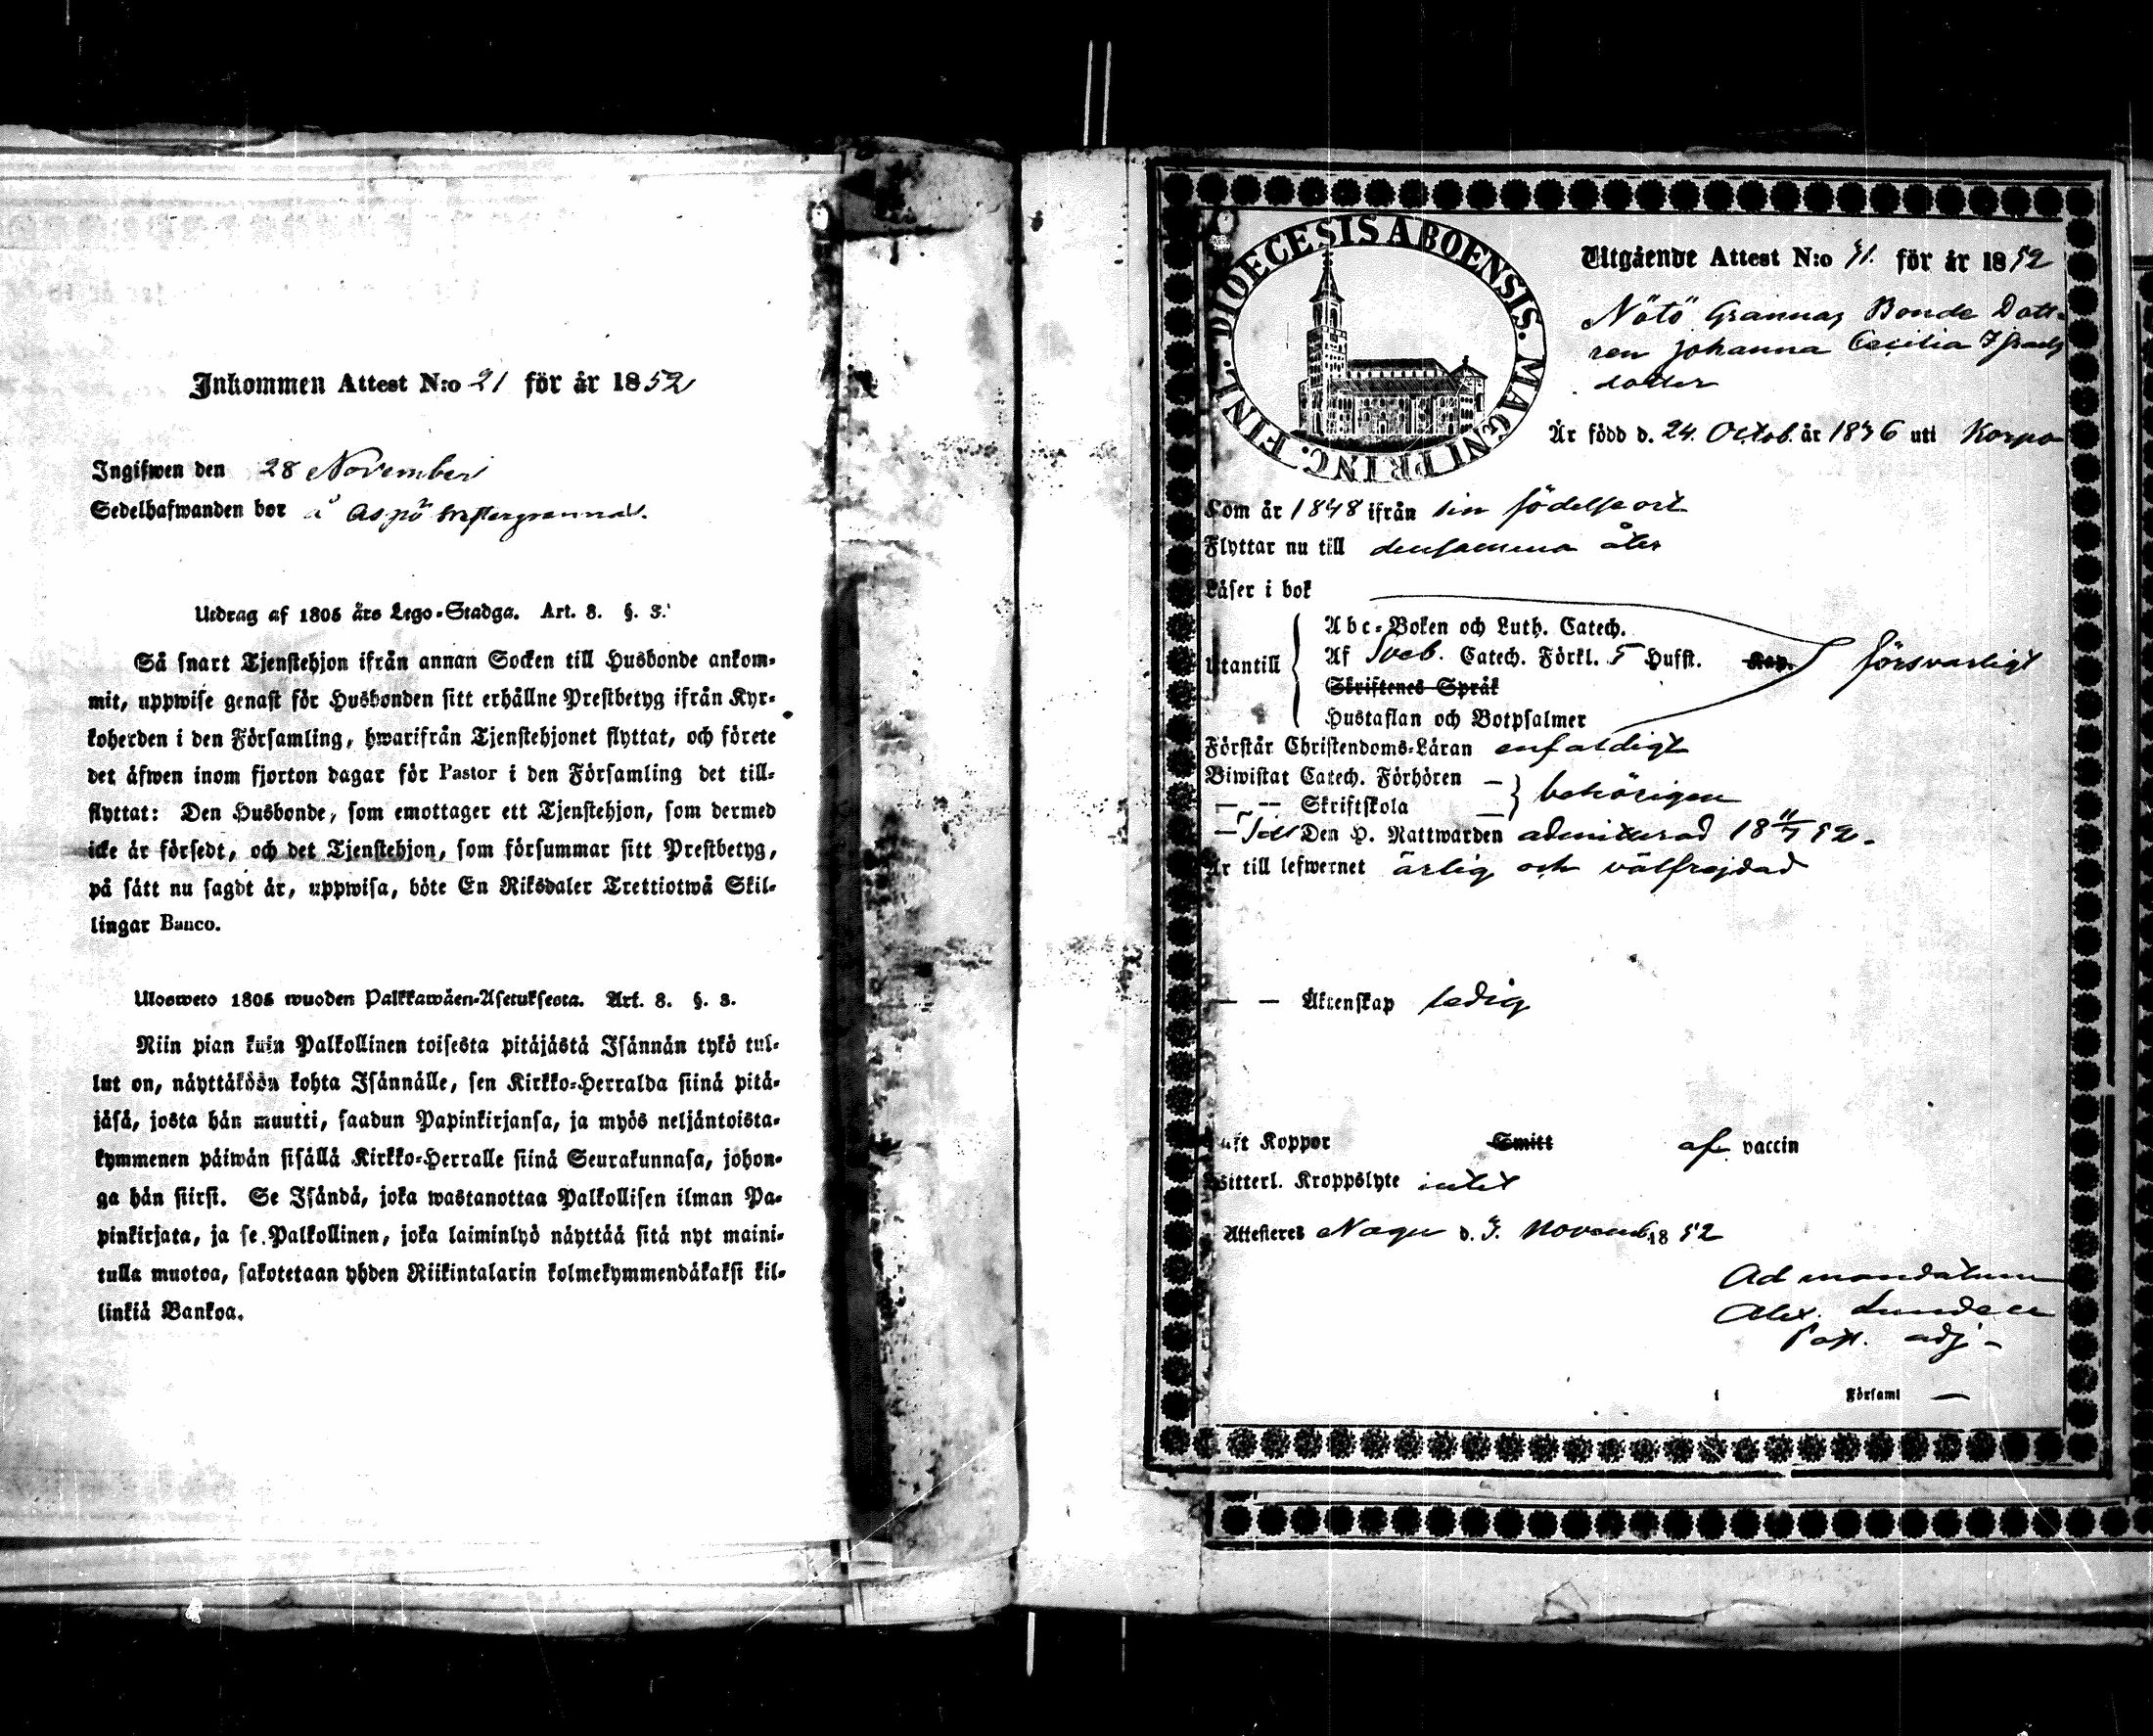 Inkommen Attest N:o 21 för år 1852
Ingifwen den 28 November
Sedelhafwanden bor å Aspö Westergrannas.
Utdrag af 1805 års Lego-Stadga. Art. 8. §. 3.
Så snart Tjenstehjon ifrån annan Socken till Husbonde ankom-
mit, uppwise genast för Husbonden sitt erhållne Prestbetyg ifrån Kyr-
koherden i den Församling, hwarifrån Tjenstehjonet flyttat, och förete
det äfwen inom fjorton dagar för Pastor i den Församling det till-
flyttat: Den Husbonde, som emottager ett Tjenstehjon, som dermed
icke är försedt, och det Tjenstehjon, som försummar sitt Prestbetyg,
på sätt nu sagdt är, uppwisa, böte En Riksdaler Trettiotwå Skil-
lingar Banco.
Ulosweto 1805 wuoden Palkkawäen-Asetuksesta. Art. 8. §. 3.
Niin pian kuin Palkollinen toisesta pitäjästä Isännän tykö tul-
lut on, näyttäköön kohta Isännälle, sen Kirkko-Herralda siinä pitä-
jäsä, josta hän muutti, saadun Papinkirjansa, ja myös neljäntoista-
kymmenen päiwän sisällä Kirkko-Herralle siinä Seurakunnasa, johon-
ga hän siirsi. Se Isändä, joka wastanottaa Palkollisen ilman Pa-
pinkirjata, ja se Palkollinen, joka laiminlyö näyttää sitä nyt maini-
tulla muotoa, sakotetaan yhden Riikintalarin kolmekymmendäkaksi kil-
linkiä Bankoa.
DIOECESIS ABOENSIS. MAGNI PRINC. FINL.
Utgående Attest N:o 41. för år 1852
Nötö Grannas Bonde Dott-
ren Johanna Cecilia Israels
dotter
Är född d. 24. Octob. år 1836 uti Korpo
Kom år 1848 ifrån sin födelseort
Flyttar nu till densamma åter
Läser i bok
Utantill
Abc-Boken och Luth. Catech.
Af Sveb. Catech. Förkl. 5 Hufst. Kap. försvarligt
Skriftenes Språk
Hustaflan och Botpsalmer
Förstår Christendoms-Läran enfaldigt
Biwistat Catech. Förhören —
— — Skriftskola — behörigen
— Till Den H. Nattwarden admitterad 18 11/7 52.
Är till lefwernet ärlig och välfrejdad
— — Äktenskap ledig
Haft Koppor Smitt af vaccin
Witterl. Kroppslyte intet
Attesteres Nagu d. Novemb. 1852
Ad mandatum
Alex. Lundell
Past. adj.
i Församl —